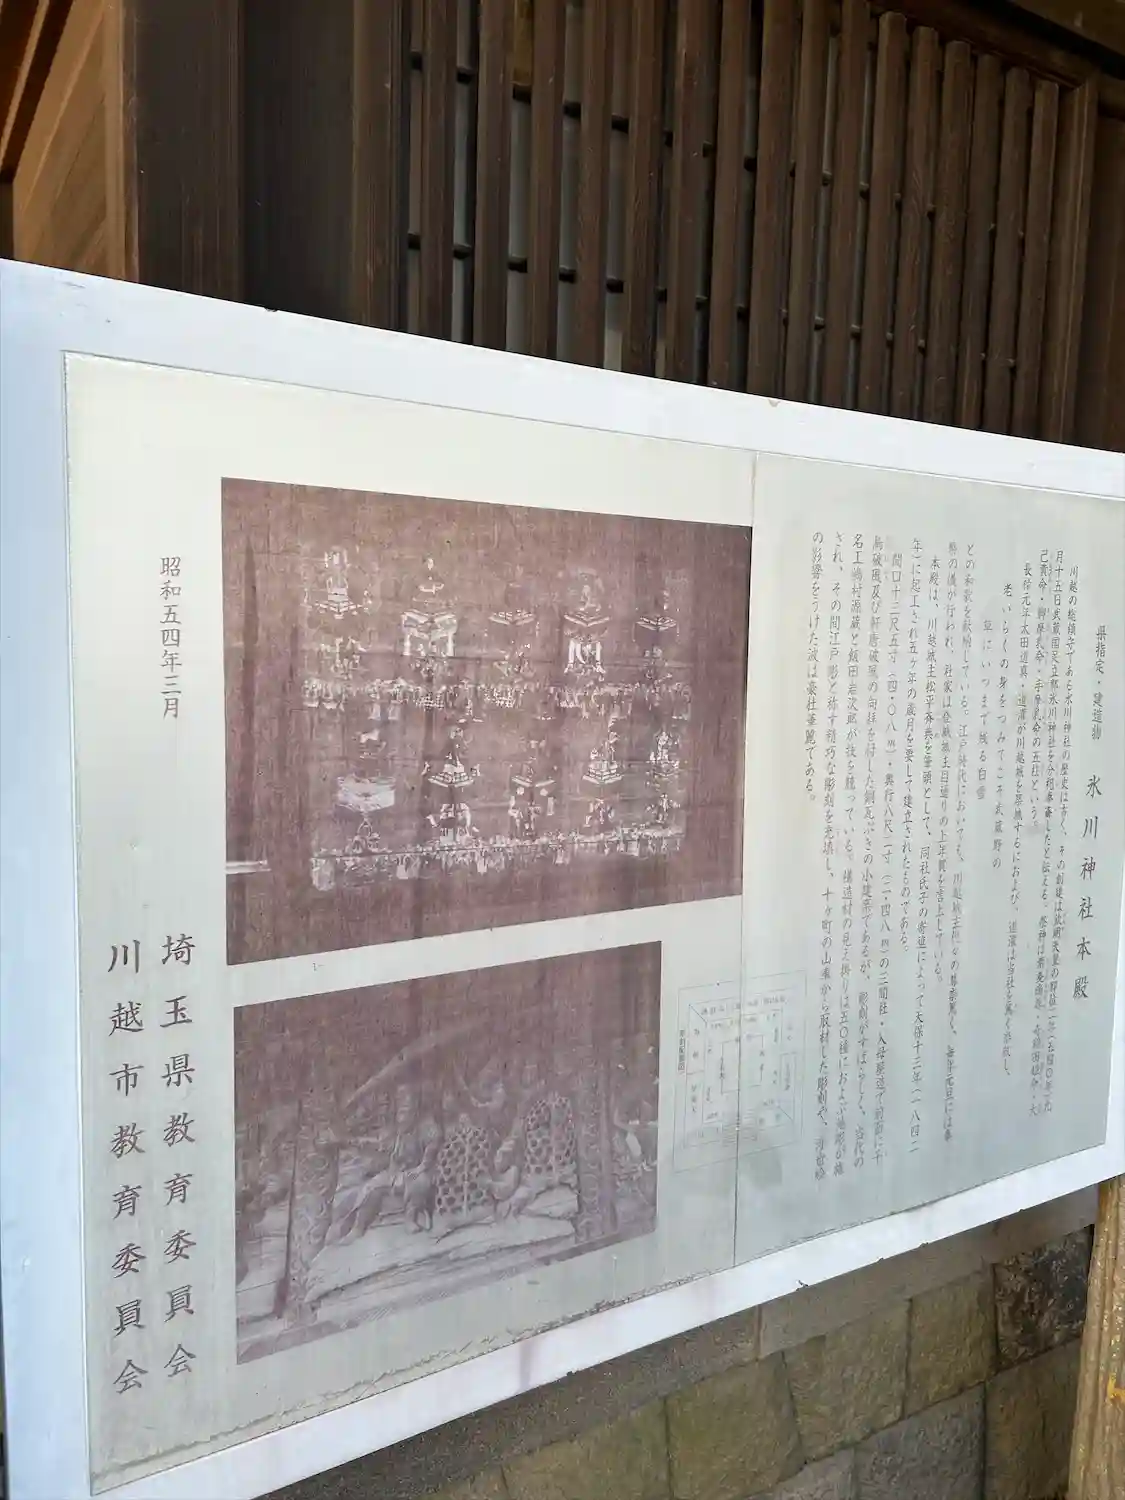 県指定・建造物
氷川神社本殿
川越の総鎮守である氷川神社の歴史は古く、その創建は欽明天皇の即位二年(五四〇年)九
月十五日武蔵国足立郡氷川神社を分祀奉斎したと伝える。祭神は素戔嗚尊・奇稲田姫命・大
己貴命・脚摩乳命・手摩乳命の五柱という。
長禄元年太田道真・道灌が川越城を築城するにおよび、道灌は当社を篤く崇敬し、
老いらくの身をつみてこそ武蔵野の
草にいつまで残る白雪
との和歌を献納している。江戸時代においても、川越城主代々の尊崇篤く、毎年元旦には奉
幣の儀が行われ、社家は登城城主目通りの上年賀を言上している。
本殿は、川越城主松平斉典を筆頭として、同社氏子の寄進によって天保十三年(一八四二
年)に起工され五ヶ年の歳月を要して建立されたものである。
間口十三尺五寸(四・〇八m)・奥行八尺二寸(二・四八m)の三間社・入母屋造で前面に千
鳥破風及び軒唐破風の向拝を付した銅瓦ぶきの小建築であるが、彫刻がすばらしく、当代の
名工嶋村源蔵と飯田岩次郎が技を競っている。構造材の見え掛りは五〇種におよぶ地彫が施
され、その間江戸彫と称す精巧な彫刻を充填し、十ヶ町の山車から取材した彫刻や、浮世絵
の影響をうけた波は豪壮華麗である。
昭和五四年三月
埼玉県教育委員会
川越市教育委員会